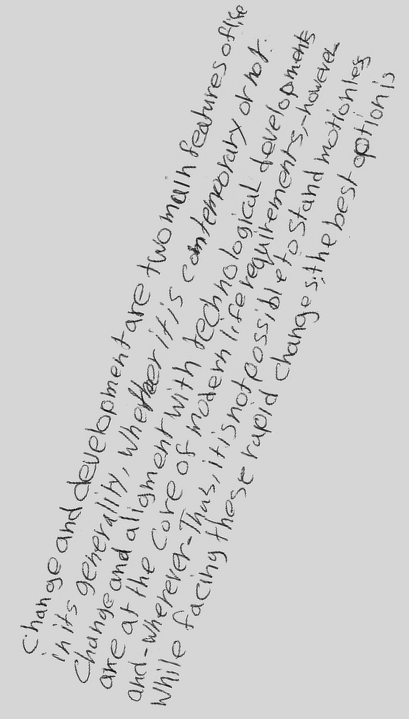 Change and development are two main features of life
in its generality, whether it is contemporary or not.
Change and aligment with technological developments
are at the core of modern life requirements,-however
and-wherever-Thus, it is not possible to stand motionles
while facing these rapid changes;the best option is